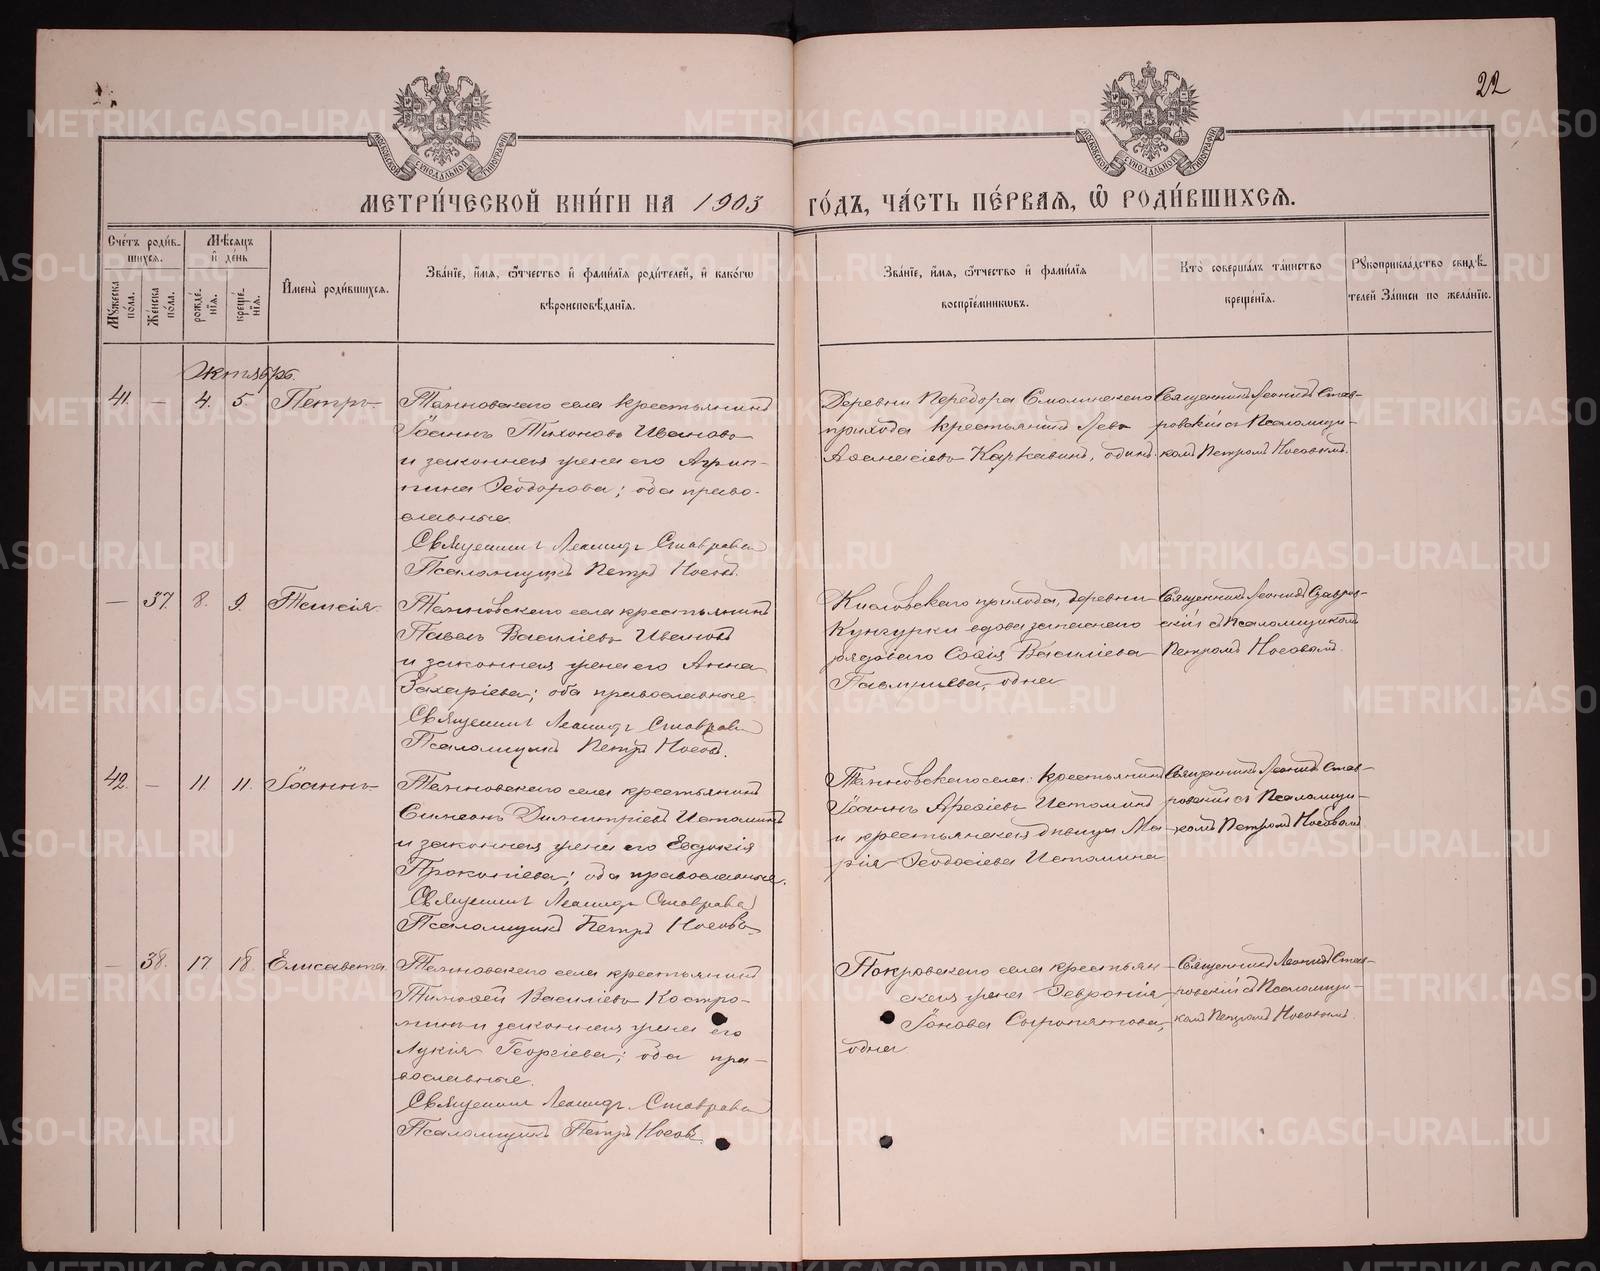 22
МОСКОВСКОЙ СУНОДАЛЬНОЙ ТИПОГРАФІИ
МОСКОВСКОЙ СУНОДАЛЬНОЙ ТИПОГРАФІИ
МЕТРИ́ЧЕСКОЙ КНИ́ГИ НА 1903 ГО́ДЪ, ЧА́СТЬ ПЕ́РВАЯ, Ѽ РОДИ́ВШИХСЯ.
Сче́тъ роди́в-
шихся.
Мꙋжеска по́ла.
Же́нска по́ла.
Мѣ́сяцъ
и҆ де́нь
рожде́-
нїя.
креще́-
нїя.
И҆мена̀ роди́вшихся.
Зва́нїе, и҆́мя, ѻ҆́тчество и҆ фами́лїя роди́телей, и҆ како́гѡ
вѣроисповѣ́данїя.
Зва́нїе, и҆́мя, ѻ҆́тчество и҆ фами́лїя
воспрїе́мниковъ.
Кто̀ соверша́лъ та́инство
креще́нїя.
Рꙋкоприкла́дство свидѣ́-
телей за́писи по жела́нїю.
Октябрь.
41. — 4. 5. Петръ.
Темновскаго села крестьянинъ
Іоаннъ Тихоновъ Ивановъ
и законная жена его Агрип-
пина Ѳеодорова; оба право-
славные.
Священникъ Леонидъ Ставровскій
Псаломщикъ Петръ Носовъ.
Деревни Перебора Смолинскаго
прихода крестьянинъ Левъ
Аѳанасіевъ Каркавинъ, одинъ.
Священникъ Леонидъ Став-
ровскій съ Псаломщи-
комъ Петромъ Носовымъ.
— 37. 8. 9. Таисія.
Темновскаго села крестьянинъ
Павелъ Василіевъ Ивановъ
и законная жена его Анна
Захаріева; оба православные
Священникъ Леонидъ Ставровскій
Псаломщикъ Петръ Носовъ.
Кисловскаго прихода, деревни
Кунгурки вдова запаснаго
рядового Софія Василіева
одна
Священникъ Леонидъ Ставров-
скій съ Псаломщикомъ
Петромъ Носовымъ.
42. — 11. 11. Іоаннъ
Темновскаго села крестьянинъ
Симеонъ Димитріевъ Истоминъ
и законная жена его Евдокія
Прокопіева; оба православные.
Священникъ Леонидъ Ставровскій
Псаломщикъ Петръ Носовъ
Темновскаго села: крестьянинъ
Іоаннъ Ареѳіевъ Истоминъ
и крестьянская дѣвица Ма-
рія Ѳеодосіева Истомина
Священникъ Леонидъ Став-
ровскій съ Псаломщи-
комъ Петромъ Носовымъ
— 38. 17 18. Елисавета.
Темновскаго села крестьянинъ
Тимоѳей Василіевъ Костро-
минъ и законная жена его
Лукія Георгіева; оба пра-
вославные.
Священникъ Леонидъ Ставровскій
Псаломщикъ Петръ Носовъ.
Покровскаго села крестьян-
ская жена Ѳевронія
Іонова Сыропятова,
одна
Священникъ Леонидъ Став-
ровскій съ Псаломщи-
комъ Петромъ Носовымъ.
METRIKI.GASO-URAL.RU